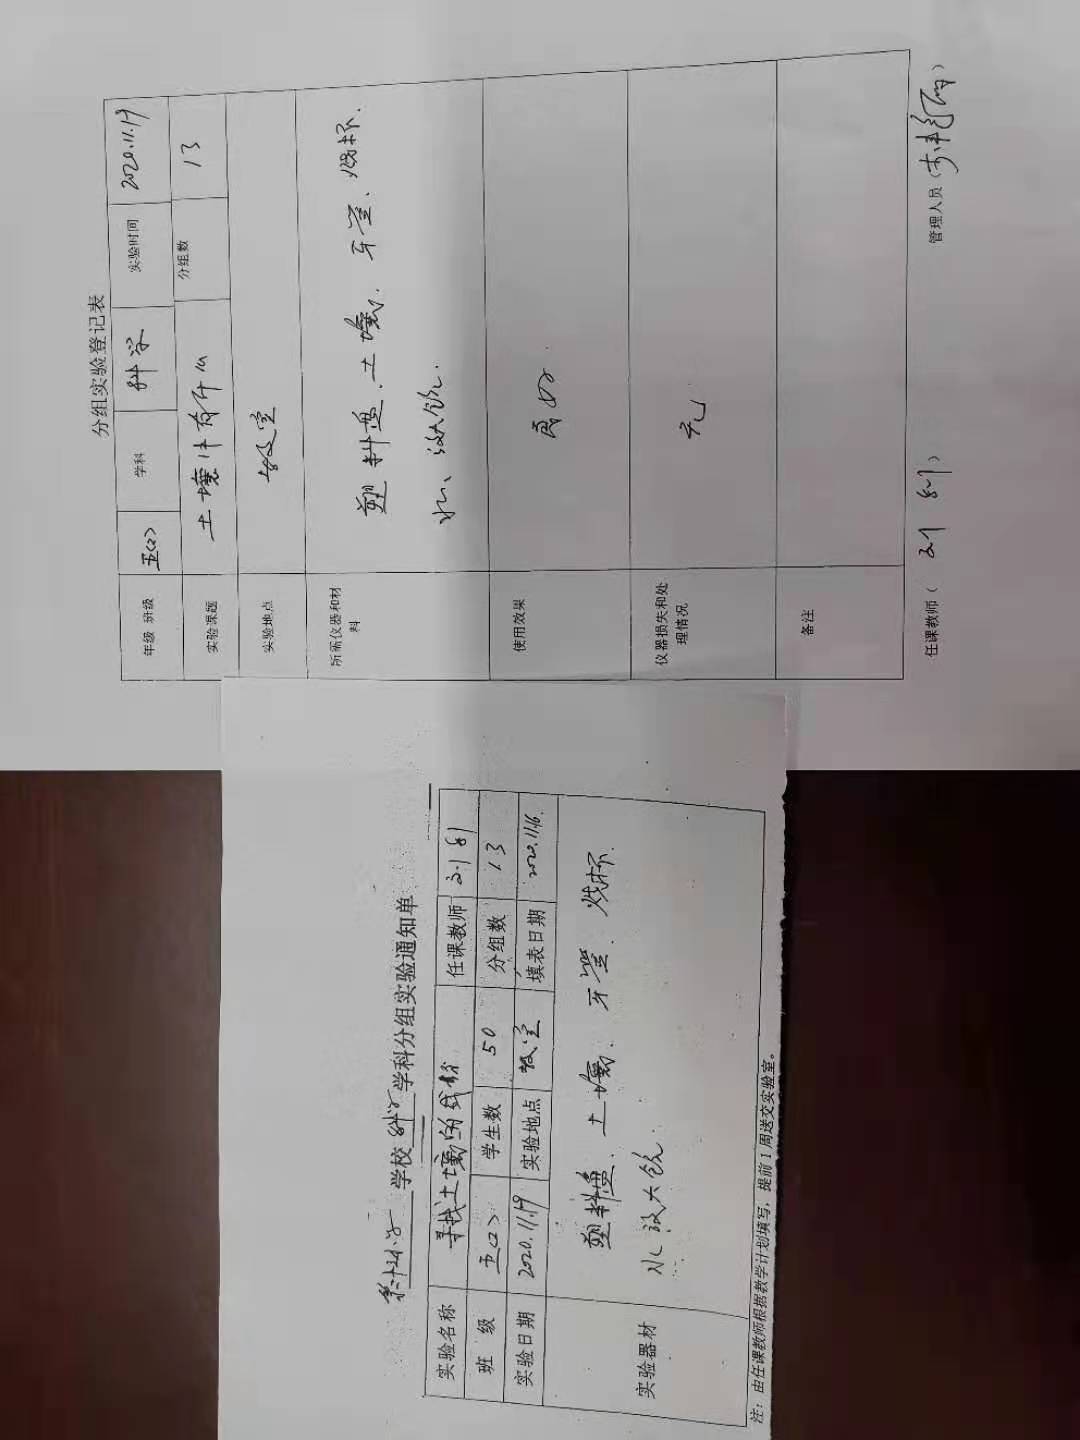 分组实验登记表
年级 班级 五(2) 学科 科学 实验时间 2020.11.19
实验课题 土壤中有什么 分组数 13
实验地点 教室
所需仪器和材料 塑料盒、土壤、牙签、烧杯、
水、放大镜、
使用效果 良好
仪器损失和处理情况 无
备注
任课教师( ) 管理人员( )
学校科学学科分组实验通知单
实验名称 寻找土壤的成份 任课教师
班 级 五(2) 学生数 50 分组数 13
实验日期 2020.11.19 实验地点 教室 填表日期 2020.11.16.
实验器材 塑料盒、土壤、牙签、烧杯、
水 放大镜
注:由任课教师根据教学计划填写,提前1周送交实验室。